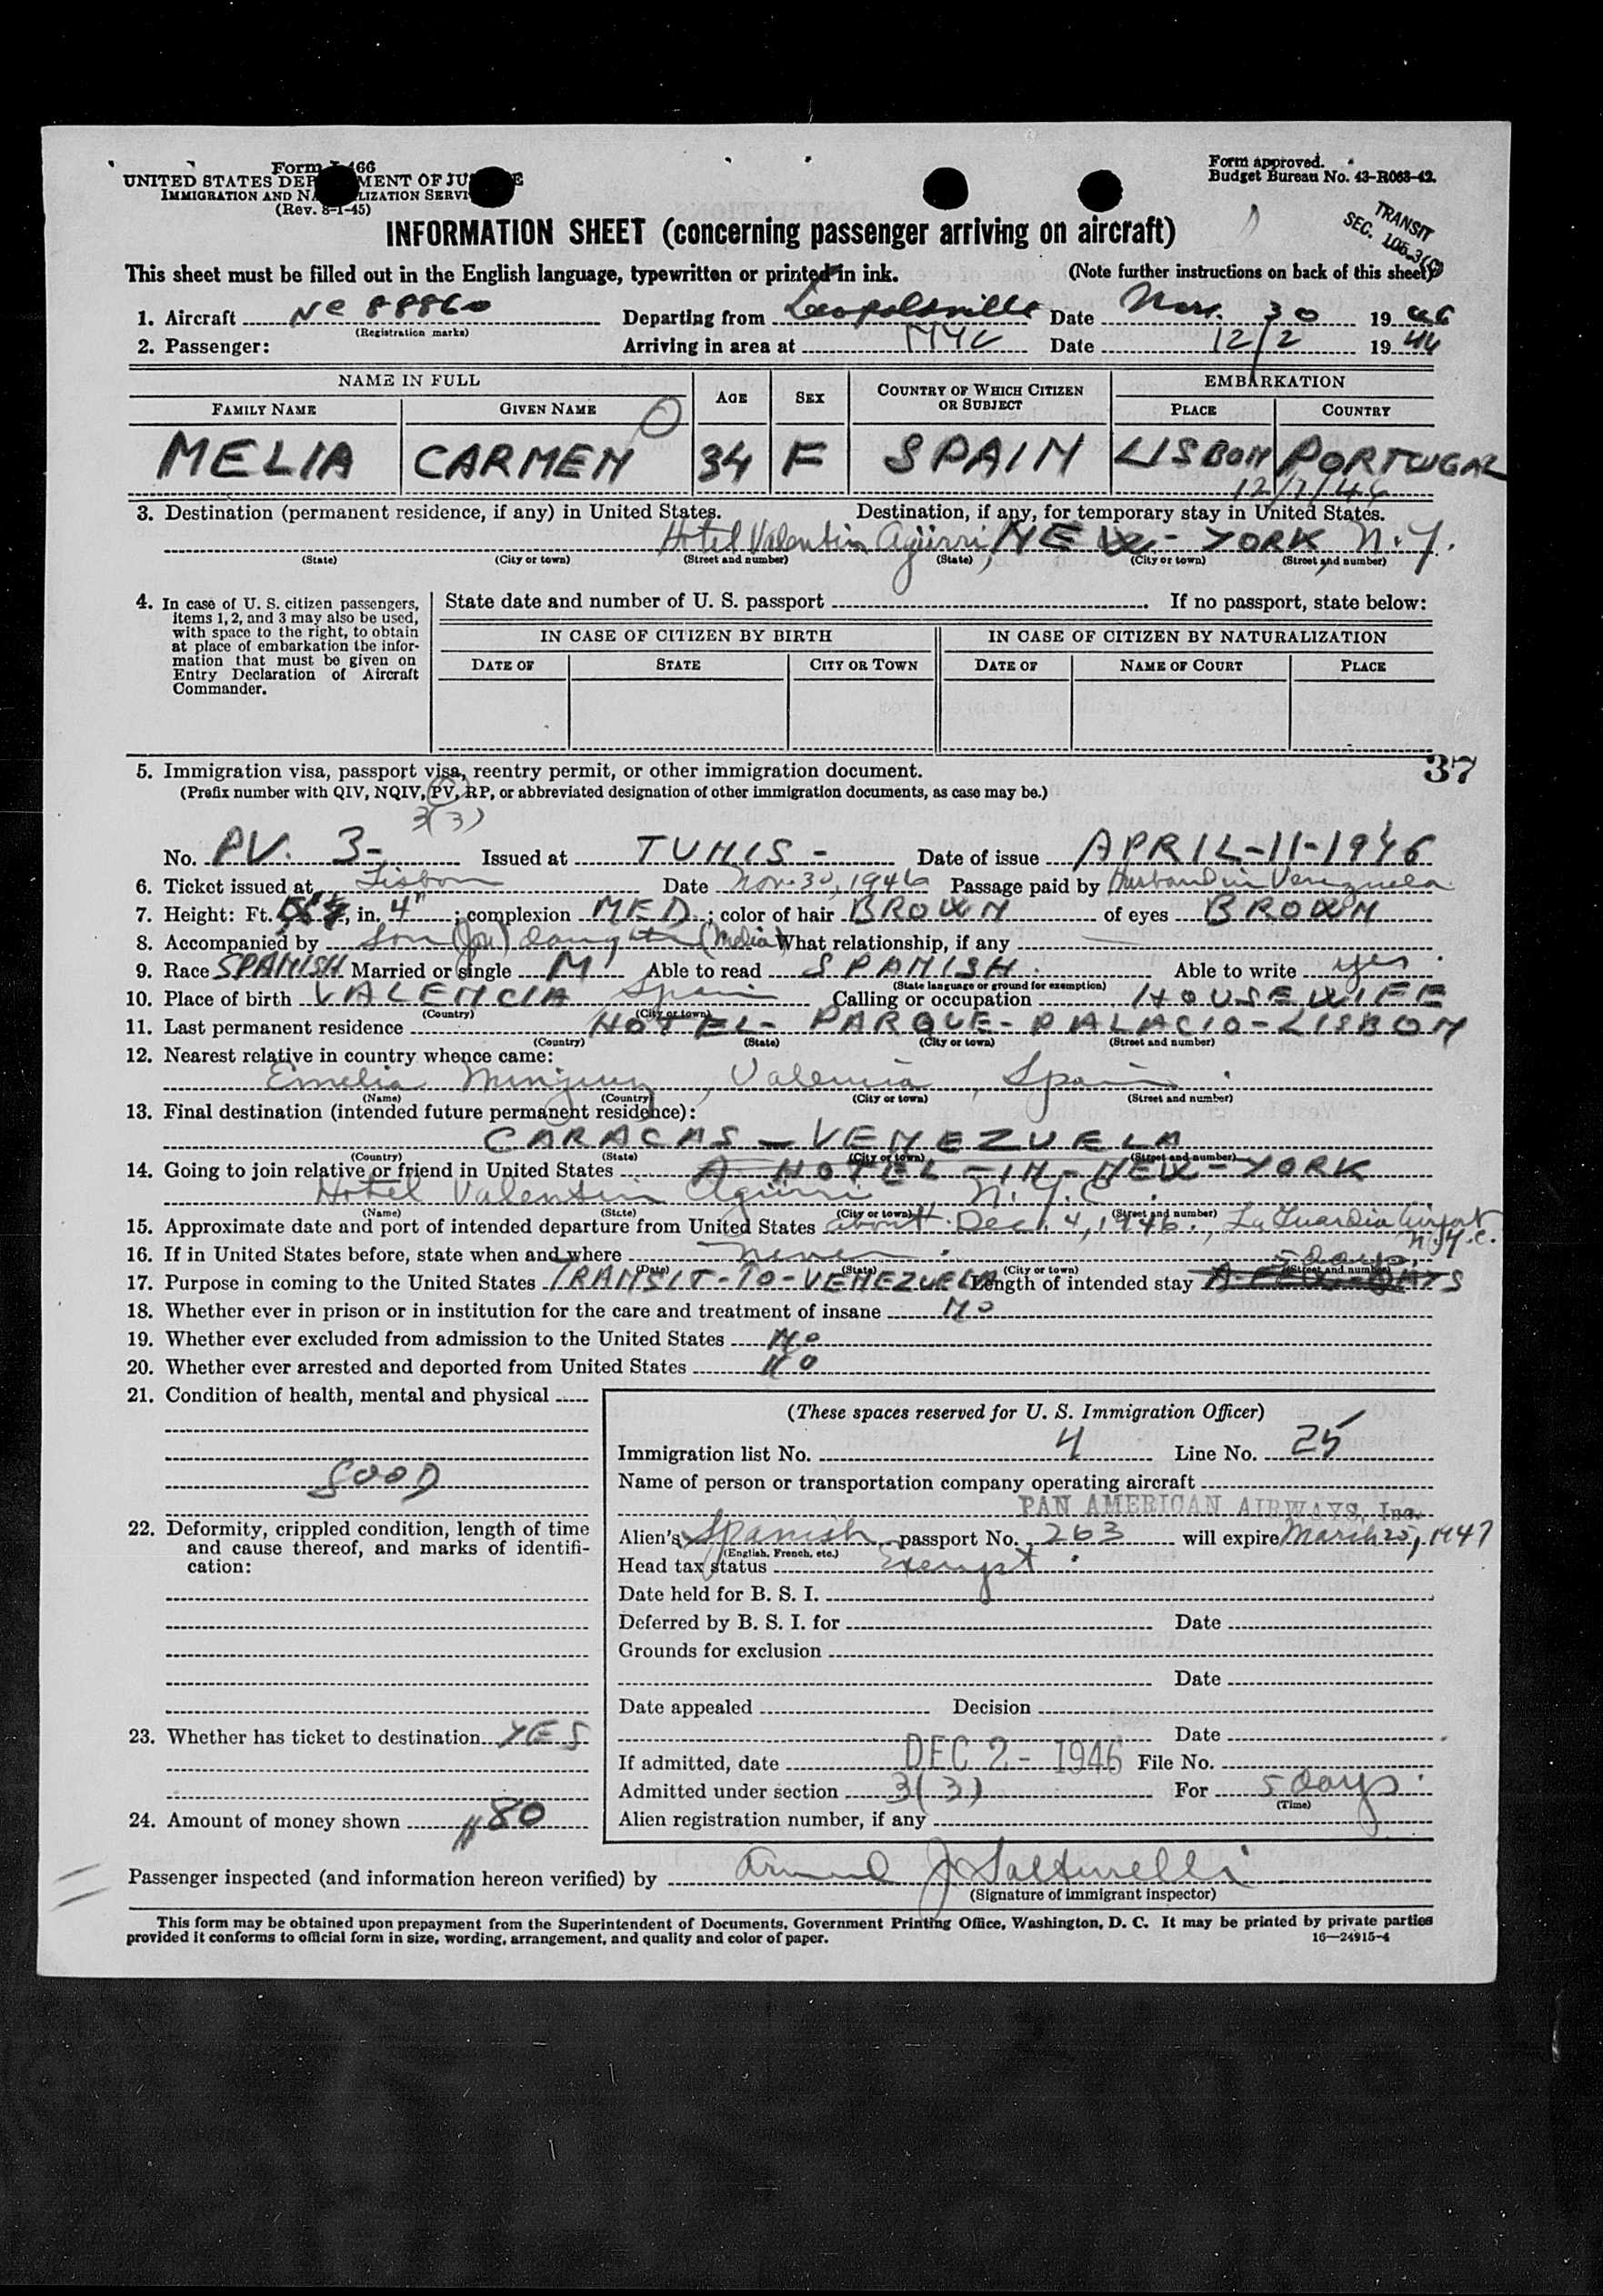 Form I-466
UNITED STATES DEPARTMENT OF JUSTICE
IMMIGRATION AND NATURALIZATION SERVICE
(Rev. 8-1-45)
Form approved.
Budget Bureau No. 43-R063-42.
TRANSIT
SEC. 105.3(C)
INFORMATION SHEET (concerning passenger arriving on aircraft)
This sheet must be filled out in the English language, typewritten or printed in ink. (Note further instructions on back of this sheet)
1. Aircraft NC 88860 Departing from Leopoldville Date Nov. 30 1946
(Registration marks)
2. Passenger: Arriving in area at NYC Date 12/2 1946
NAME IN FULL AGE SEX COUNTRY OF WHICH CITIZEN OR SUBJECT EMBARKATION
FAMILY NAME GIVEN NAME PLACE COUNTRY
MELIA CARMEN 34 F SPAIN LISBON PORTUGAL
12/1/46
3. Destination (permanent residence, if any) in United States. Destination, if any, for temporary stay in United States.
Hotel Valentin Aguirri, NEW-YORK, N.Y.
(State) (City or town) (Street and number) (State) (City or town) (Street and number)
4. In case of U. S. citizen passengers, items 1, 2, and 3 may also be used, with space to the right, to obtain at place of embarkation the information that must be given on Entry Declaration of Aircraft Commander.
State date and number of U. S. passport If no passport, state below:
IN CASE OF CITIZEN BY BIRTH IN CASE OF CITIZEN BY NATURALIZATION
DATE OF STATE CITY OR TOWN DATE OF NAME OF COURT PLACE
37
5. Immigration visa, passport visa, reentry permit, or other immigration document.
(Prefix number with QIV, NQIV, PV, RP, or abbreviated designation of other immigration documents, as case may be.)
3(3)
No. PV. 3- Issued at TUNIS - Date of issue APRIL-11-1946
6. Ticket issued at Lisbon Date Nov. 30, 1946 Passage paid by Husband in Venezuela
7. Height: Ft. 5, in. 4" ; complexion MED. ; color of hair BROWN of eyes BROWN
8. Accompanied by Son (Jose) daughter (Melia) What relationship, if any
9. Race SPANISH Married or single M Able to read SPANISH. Able to write yes.
(State language or ground for exemption)
10. Place of birth VALENCIA Spain Calling or occupation HOUSEWIFE
(Country) (City or town)
11. Last permanent residence HOTEL- PARQUE- PALACIO- LISBON
(Country) (State) (City or town) (Street and number)
12. Nearest relative in country whence came:
Emelia , Valencia, Spain.
(Name) (Country) (City or town) (Street and number)
13. Final destination (intended future permanent residence):
CARACAS - VENEZUELA
(Country) (State) (City or town) (Street and number)
14. Going to join relative or friend in United States A HOTEL - IN - NEW-YORK
Hotel Valentin Aguirri, N.Y.C.
(Name) (State) (City or town) (Street and number)
15. Approximate date and port of intended departure from United States about Dec. 4, 1946., La Guardia Airport N.Y.C.
16. If in United States before, state when and where never.
(Date) (State) (City or town) (Street and number)
5 days.
17. Purpose in coming to the United States TRANSIT-TO-VENEZUELA Length of intended stay A-FEW-DAYS
18. Whether ever in prison or in institution for the care and treatment of insane NO
19. Whether ever excluded from admission to the United States NO
20. Whether ever arrested and deported from United States NO
21. Condition of health, mental and physical
GOOD
22. Deformity, crippled condition, length of time and cause thereof, and marks of identification:
23. Whether has ticket to destination YES
24. Amount of money shown $80
(These spaces reserved for U. S. Immigration Officer)
Immigration list No. 4 Line No. 25
Name of person or transportation company operating aircraft
PAN AMERICAN AIRWAYS, Inc.
Alien's Spanish passport No. 263 will expire March 25, 1947
(English, French, etc.)
Head tax status Exempt.
Date held for B. S. I.
Deferred by B. S. I. for Date
Grounds for exclusion
Date
Date appealed Decision
Date
If admitted, date DEC 2 - 1946 File No.
Admitted under section 3(3) For 5 days.
(Time)
Alien registration number, if any
Passenger inspected (and information hereon verified) by J Salturelli
(Signature of immigrant inspector)
This form may be obtained upon prepayment from the Superintendent of Documents, Government Printing Office, Washington, D. C. It may be printed by private parties
provided it conforms to official form in size, wording, arrangement, and quality and color of paper. 16—24915-4